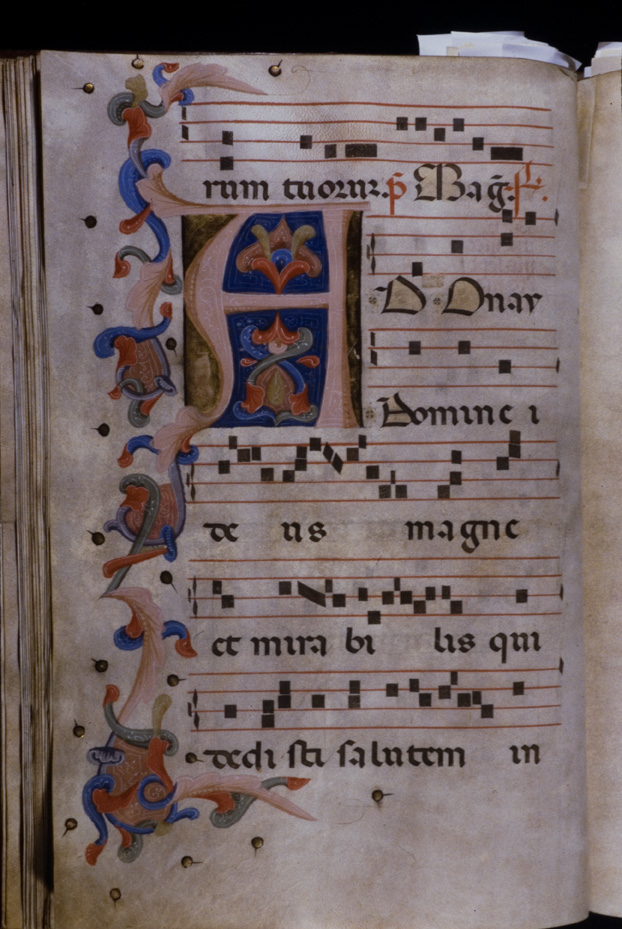 rum tuoruz. p̄ Mag̅.
A D Onay
Domine i
de us magne
et mira bi lis qui
dedi sti salutem in